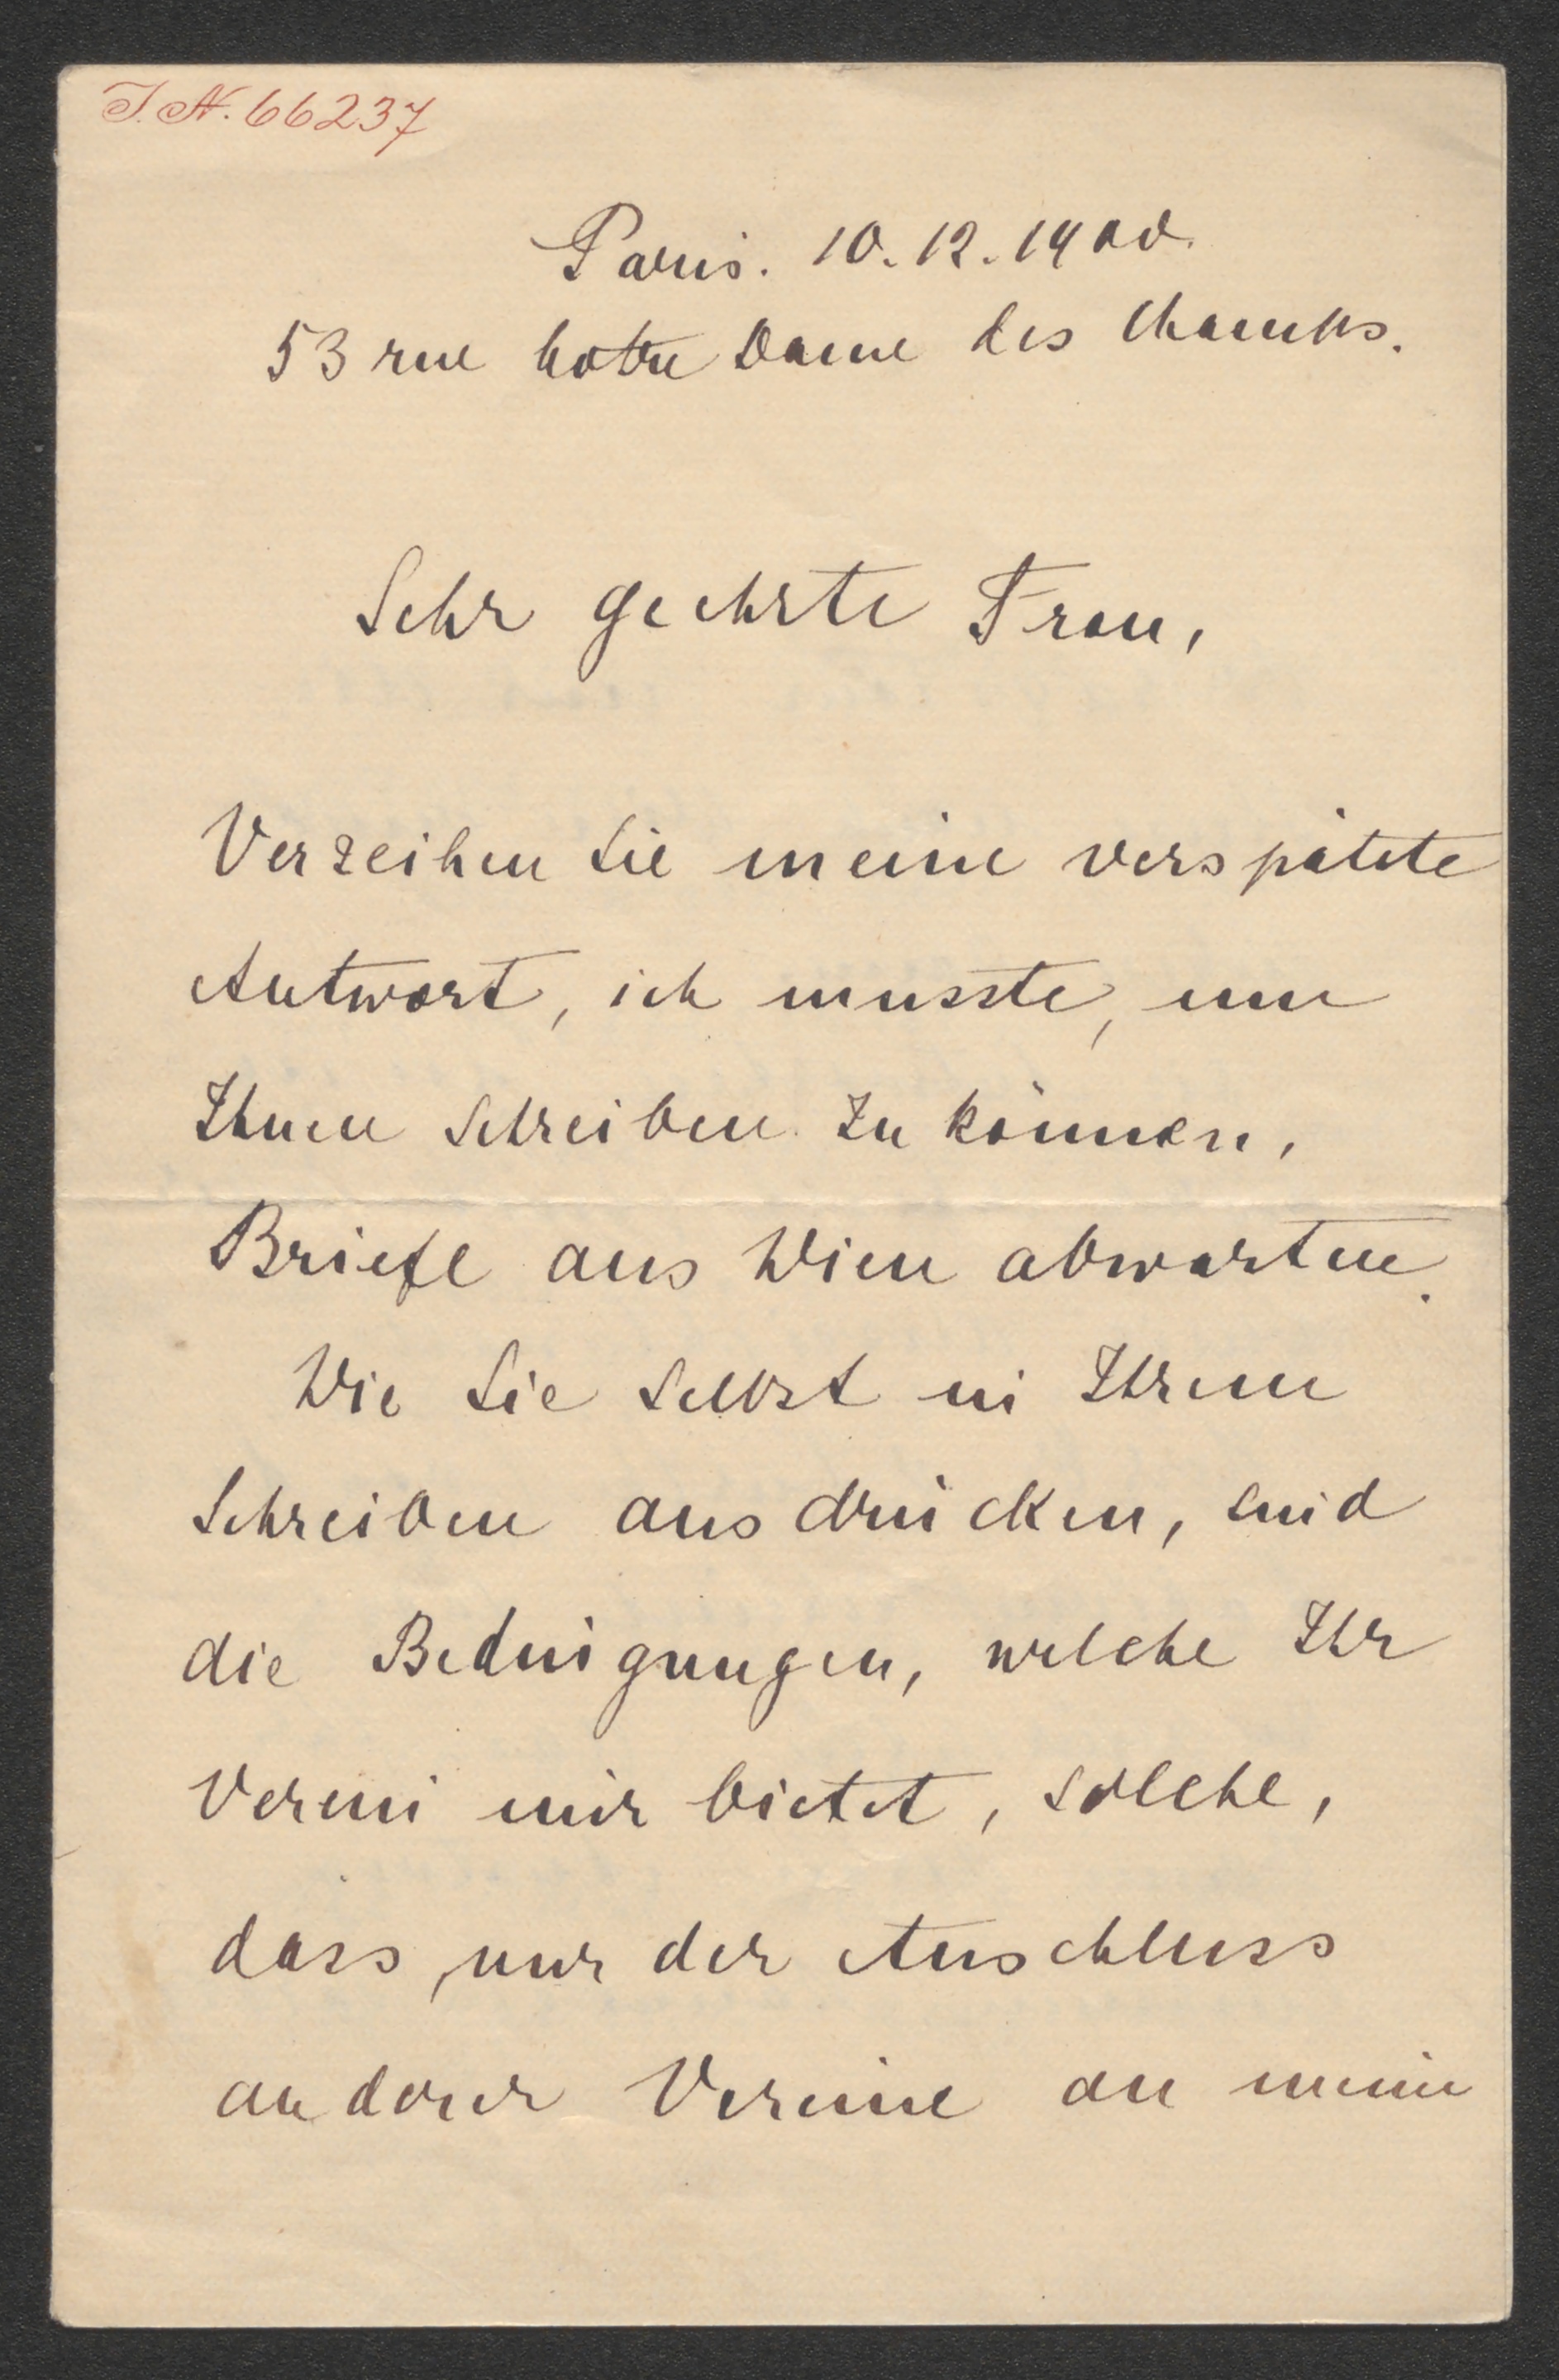 I.N. 66237
Paris. 10.12.1900.
53 rue Notre Dame des Champs.
Sehr geehrte Frau,
Verzeihen Sie meine verspätete
Antwort, ich musste, um
Ihnen schreiben zu können,
Briefe aus Wien abwarten.
Wie Sie selbst in Ihrem
Schreiben ausdrücken, sind
die Bedingungen, welche Ihr
Verein mir bietet, solche,
dass, nur der Anschluss
anderer Vereine an meine